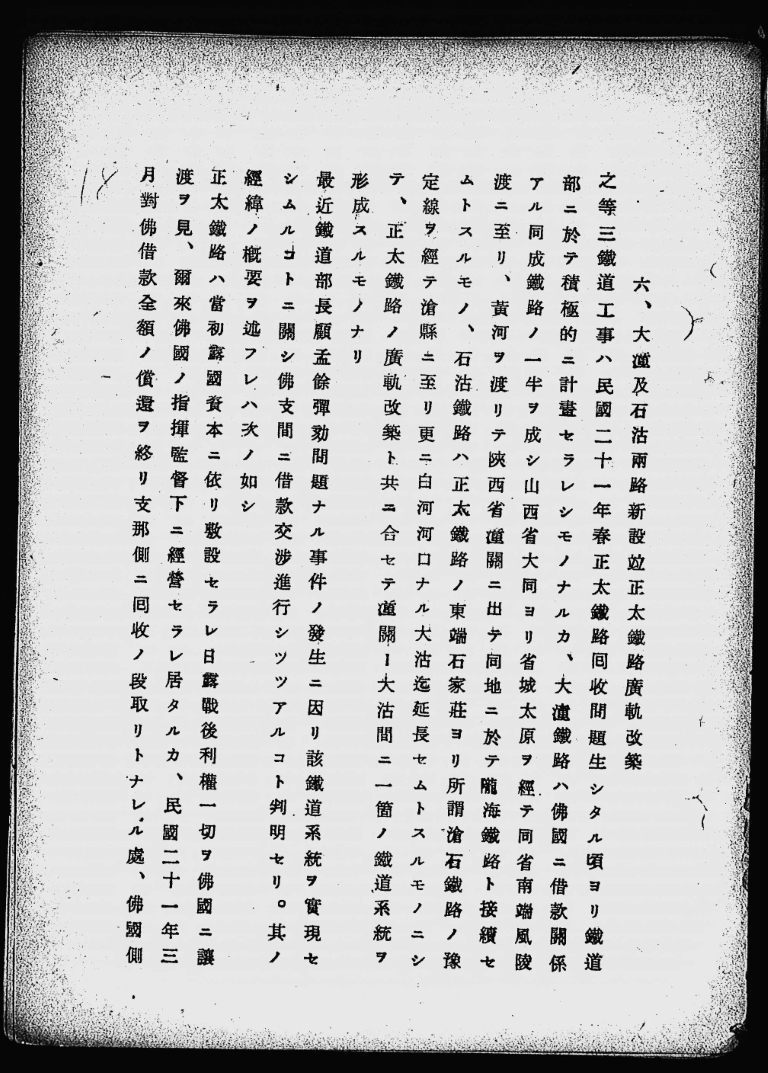 六、大潼及石沽兩路新設竝正太鐵路廣軌改築
之等三鐵道工事ハ民國二十一年春正太鐵路囘收問題生シタル頃ヨリ鐵道
部ニ於テ積極的ニ計畫セラレシモノナルカ、大潼鐵路ハ佛國ニ借款關係
アル同成鐵路ノ一半ヲ成シ山西省大同ヨリ省城太原ヲ經テ同省南端風陵
渡ニ至リ、黃河ヲ渡リテ陝西省潼關ニ出テ同地ニ於テ隴海鐵路ト接續セ
ムトスルモノ、石沽鐵路ハ正太鐵路ノ東端石家莊ヨリ所謂滄石鐵路ノ豫
定線ヲ經テ滄縣ニ至リ更ニ白河河口ナル大沽迄延長セムトスルモノニシ
テ、正太鐵路ノ廣軌改築ト共ニ合セテ潼關ー大沽間ニ一箇ノ鐵道系統ヲ
形成スルモノナリ
最近鐵道部長顧孟餘彈劾問題ナル事件ノ發生ニ因リ該鐵道系統ヲ實現セ
シムルコトニ關シ佛支間ニ借款交涉進行シツツアルコト判明セリ。其ノ
經緯ノ概要ヲ述フレハ次ノ如シ
正太鐵路ハ當初露國資本ニ依リ敷設セラレ日露戰後利權一切ヲ佛國ニ讓
渡ヲ見、爾來佛國ノ指揮監督下ニ經營セラレ居タルカ、民國二十一年三
月對佛借款全額ノ償還ヲ終リ支那側ニ囘收ノ段取リトナレル處、佛國側
18